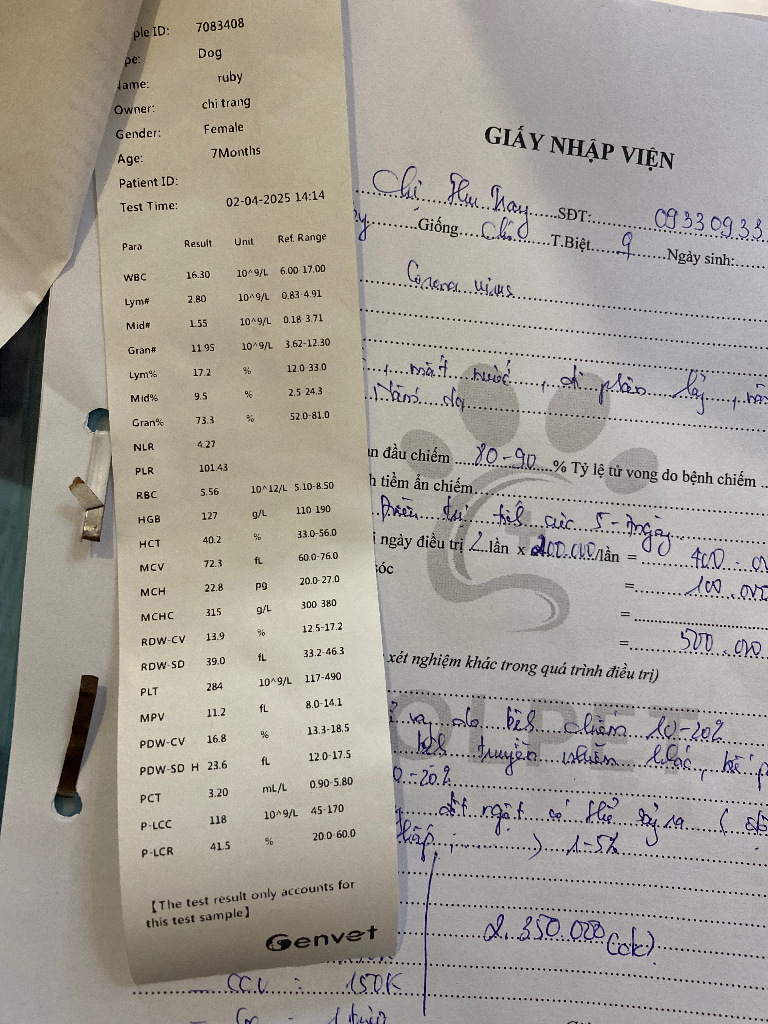 ple ID: 7083408
pe: Dog
Name: ruby
Owner: chi trang
Gender: Female
Age: 7Months
Patient ID:
Test Time: 02-04-2025 14:14
Para Result Unit Ref. Range
WBC 16.30 10^9/L 6.00-17.00
Lym# 2.80 10^9/L 0.83-4.91
Mid# 1.55 10^9/L 0.18-3.71
Gran# 11.95 10^9/L 3.62-12.30
Lym% 17.2 % 12.0-33.0
Mid% 9.5 % 2.5-24.3
Gran% 73.3 % 52.0-81.0
NLR 4.27
PLR 101.43
RBC 5.56 10^12/L 5.10-8.50
HGB 127 g/L 110-190
HCT 40.2 % 33.0-56.0
MCV 72.3 fL 60.0-76.0
MCH 22.8 pg 20.0-27.0
MCHC 315 g/L 300-380
RDW-CV 13.9 % 12.5-17.2
RDW-SD 39.0 fL 33.2-46.3
PLT 284 10^9/L 117-490
MPV 11.2 fL 8.0-14.1
PDW-CV 16.8 % 13.3-18.5
PDW-SD H 23.6 fL 12.0-17.5
PCT 3.20 mL/L 0.90-5.80
P-LCC 118 10^9/L 45-170
P-LCR 41.5 % 20.0-60.0
【The test result only accounts for
this test sample】
Genvet
GIẤY NHẬP VIỆN
Chị SĐT: 09330933
Giống Chó T.Biệt ♀ Ngày sinh:
Corona virus
, mất nước, đi phân lầy,
n đầu chiếm 80-90 % Tỷ lệ tử vong do bệnh chiếm
h tiềm ẩn chiếm
5-7ngày
i ngày điều trị 2 lần x 200.000/lần = 400.0
óc = 100.000
=
= 500.000
xét nghiệm khác trong quá trình điều trị)
OLPET
do bệh chiếm 10-20%
bệh truyền nhiễm khác,
0-20%
đột ngột có thể xảy ra (
thấp; ) 1-5%
2.350.000 (ck)
CCV : 150K
1 tuần